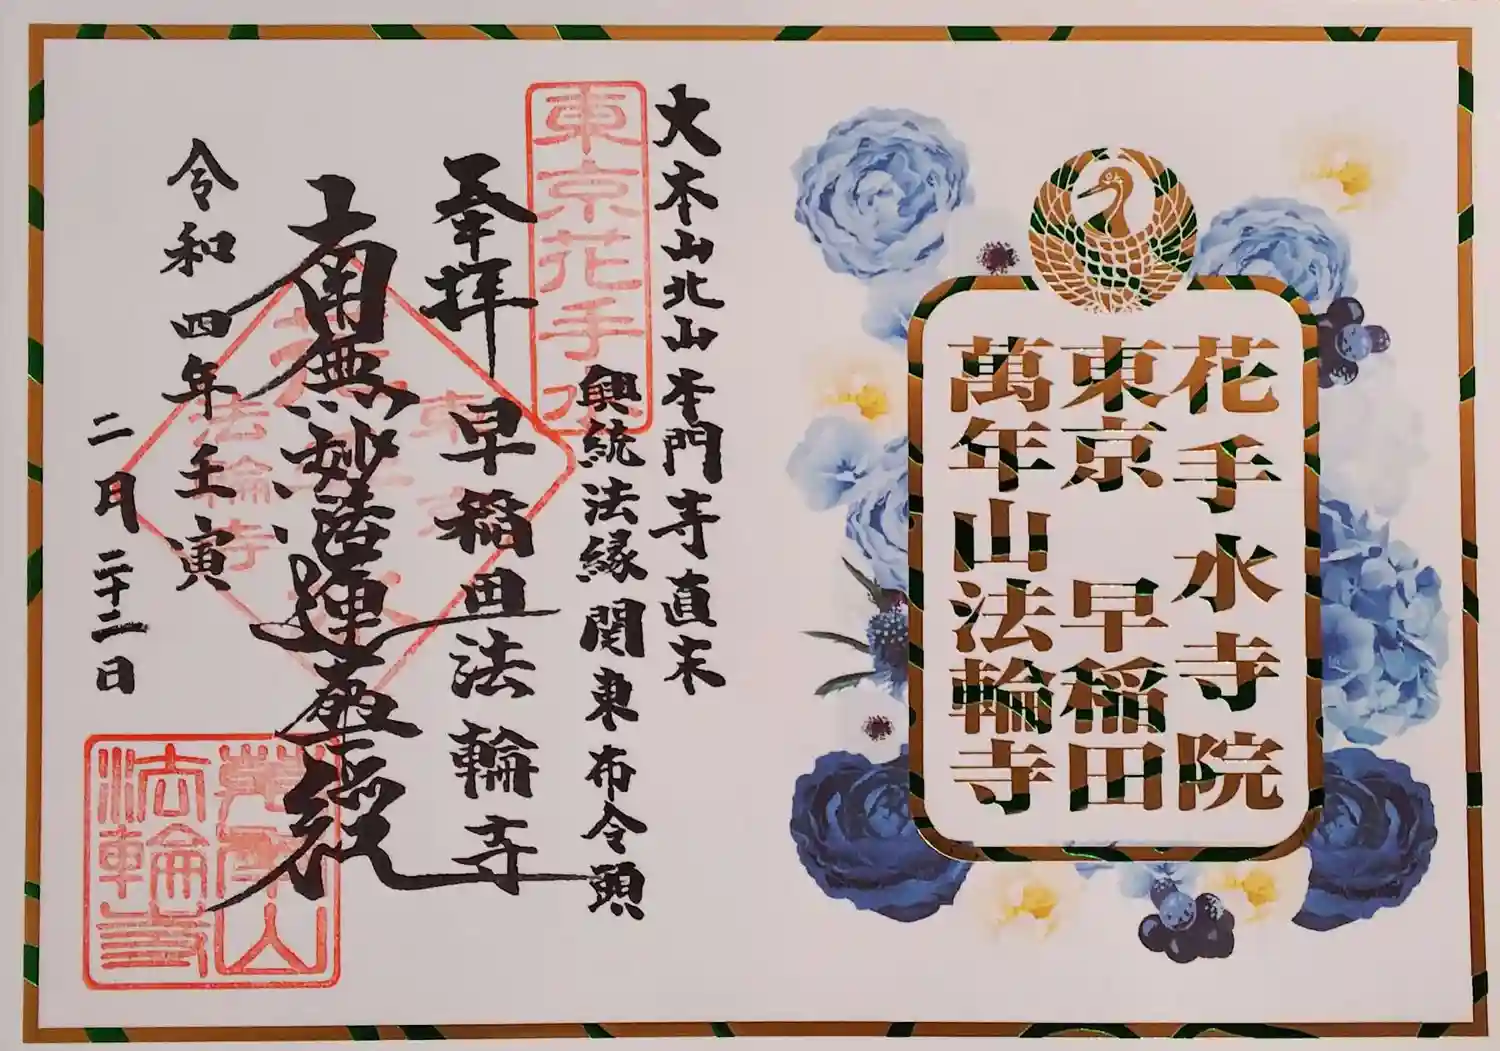 花手水寺院
東京 早稲田
萬年山法輪寺
大本山北山本門寺直末
興統法縁関東布令頭
東京花手水
奉拝 早稲田法輪寺
南無妙法蓮華経
令和四年壬寅
二月二十二日
萬年山
法輪寺